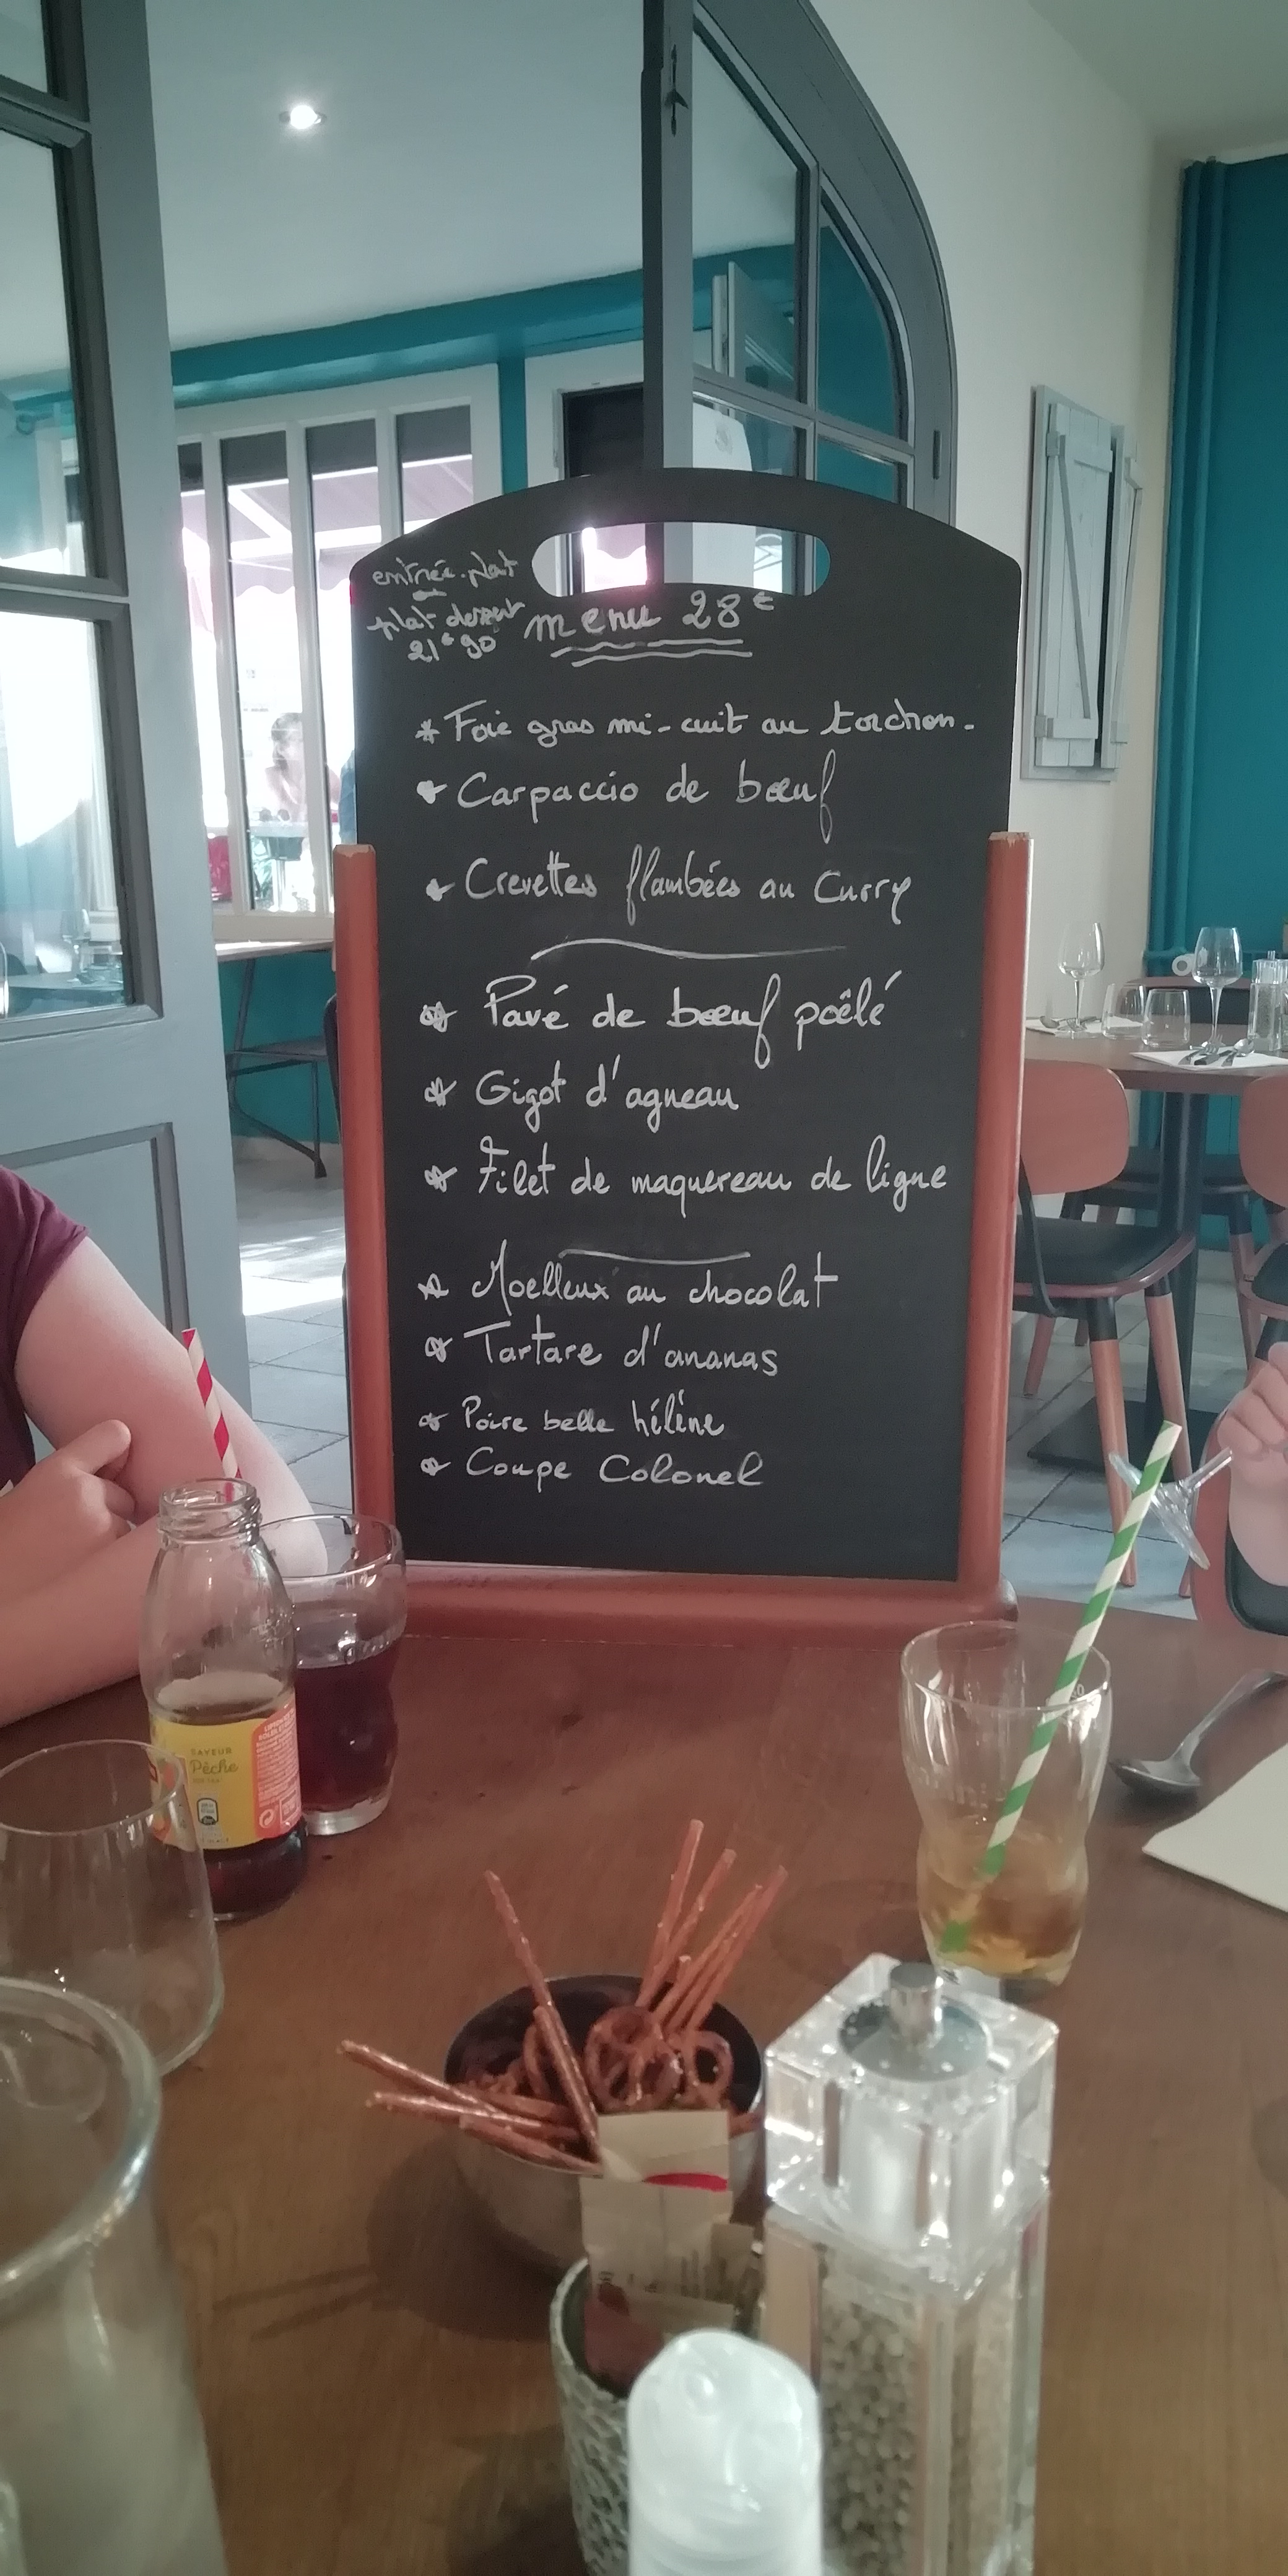 entrée.plat
ou
plat dessert
21€90
menu 28€
* Foie gras mi-cuit au torchon.
Carpaccio de bœuf
Crevettes flambées au Curry
Pavé de bœuf poêlé
Gigot d'agneau
Filet de maquereau de ligne
Moelleux au chocolat
Tartare d'ananas
Poire belle hélène
Coupe Colonel
SAVEUR
Pêche